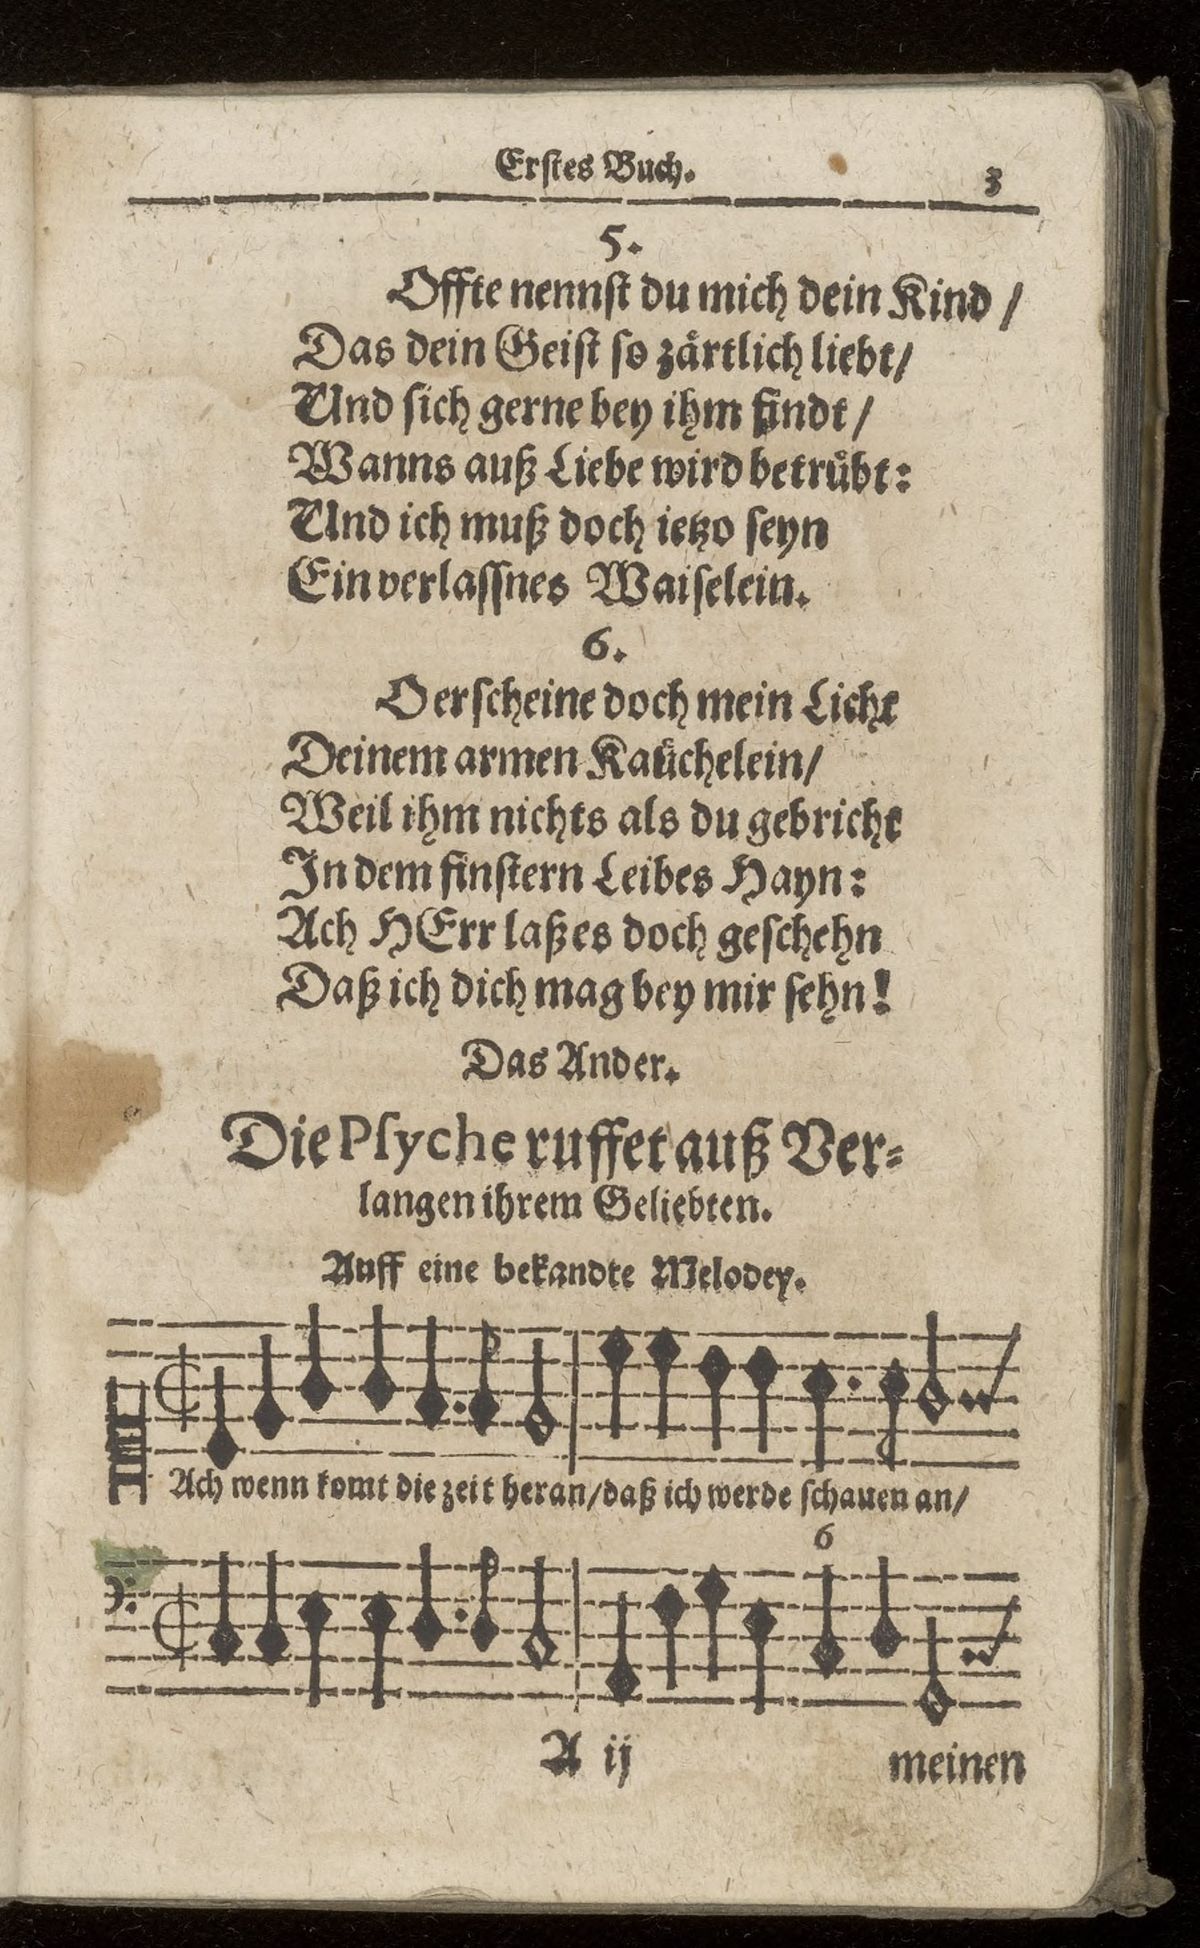 Erſtes Buch. 3
5.
Offte nennſt du mich dein Kind /
Das dein Geiſt ſo zaͤrtlich liebt/
Und ſich gerne bey ihm findt /
Wanns auß Liebe wird betruͤbt:
Und ich muß doch ietzo ſeyn
Ein verlaſſnes Waiſelein.
6.
O erſcheine doch mein Licht
Deinem armen Kaŭchelein/
Weil ihm nichts als du gebricht
In dem finſtern Leibes Hayn:
Ach HErr laß es doch geſchehn
Daß ich dich mag bey mir ſehn!
Das Ander.
Die Pſyche ruffet auß Ver-
langen ihrem Geliebten.
Auff eine bekandte Melodey.
Ach wenn komt die zeit heran/daß ich werde ſchauen an/
6
A ij meinen